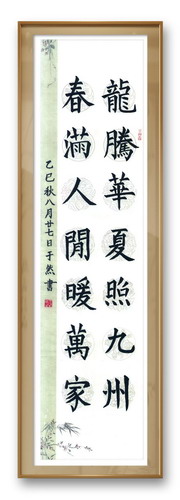 龍騰華夏照九州
春滿人間暖萬家
乙巳秋八月廿七日于然書